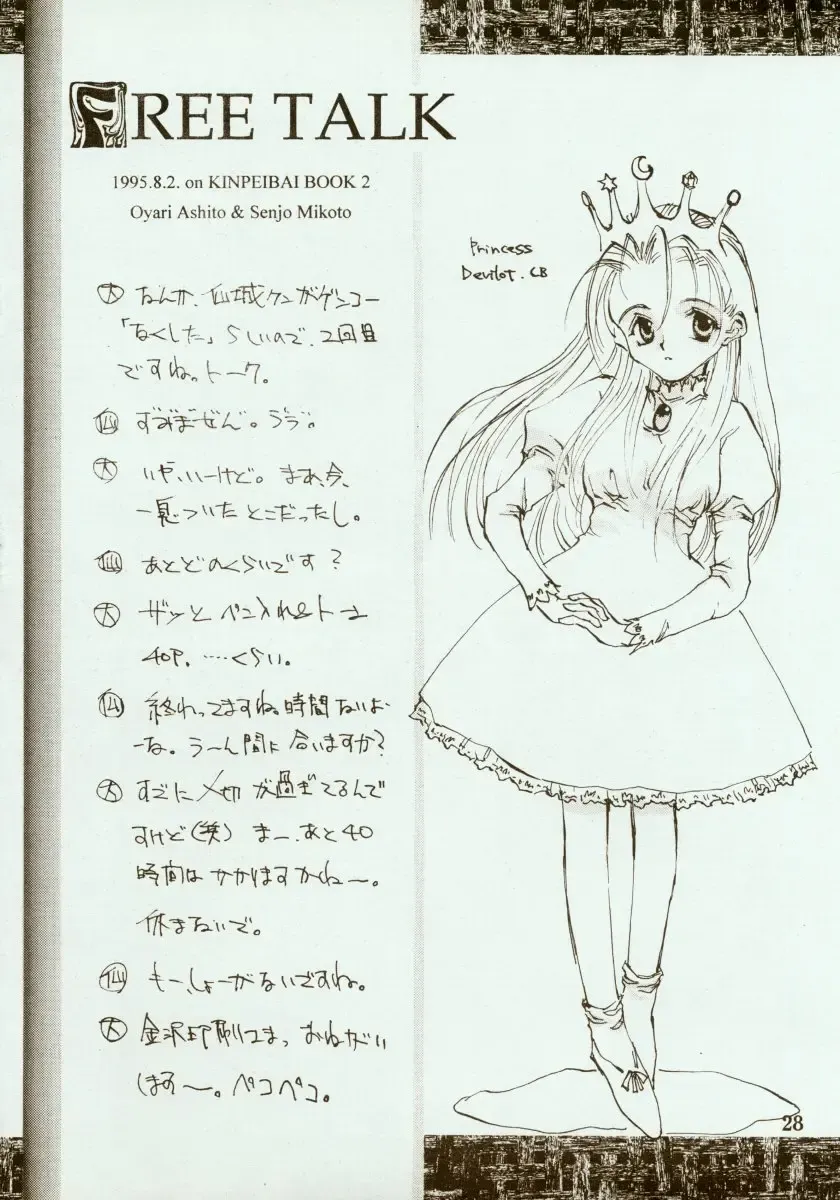 FREE TALK
1995.8.2. on KINPEIBAI BOOK 2
Oyari Ashito & Senjo Mikoto
Princess
Devilot. CB
大 なんか、仙城クンがゲンコー
「なくした」らしいので、2回目
ですね。トーク。
仙 ずみまぜん。ううう゛。
大 いや、いーけど。まあ、今、
一息ついたとこだったし。
仙 あとどのくらいです?
大 ザッと ペン入れ&トーン
40P. ‥‥くらい。
仙 終わってますね。時間ないよ
ーな。うーん間に合いますか?
大 すでに〆切が過ぎてるんで
すけど(笑) まー、あと40
時間は かかりますかねー。
休まないで。
仙 もー、しょーがないですね。
大 金沢印刷さまっ おねがい
しますー。ペコペコ。
28